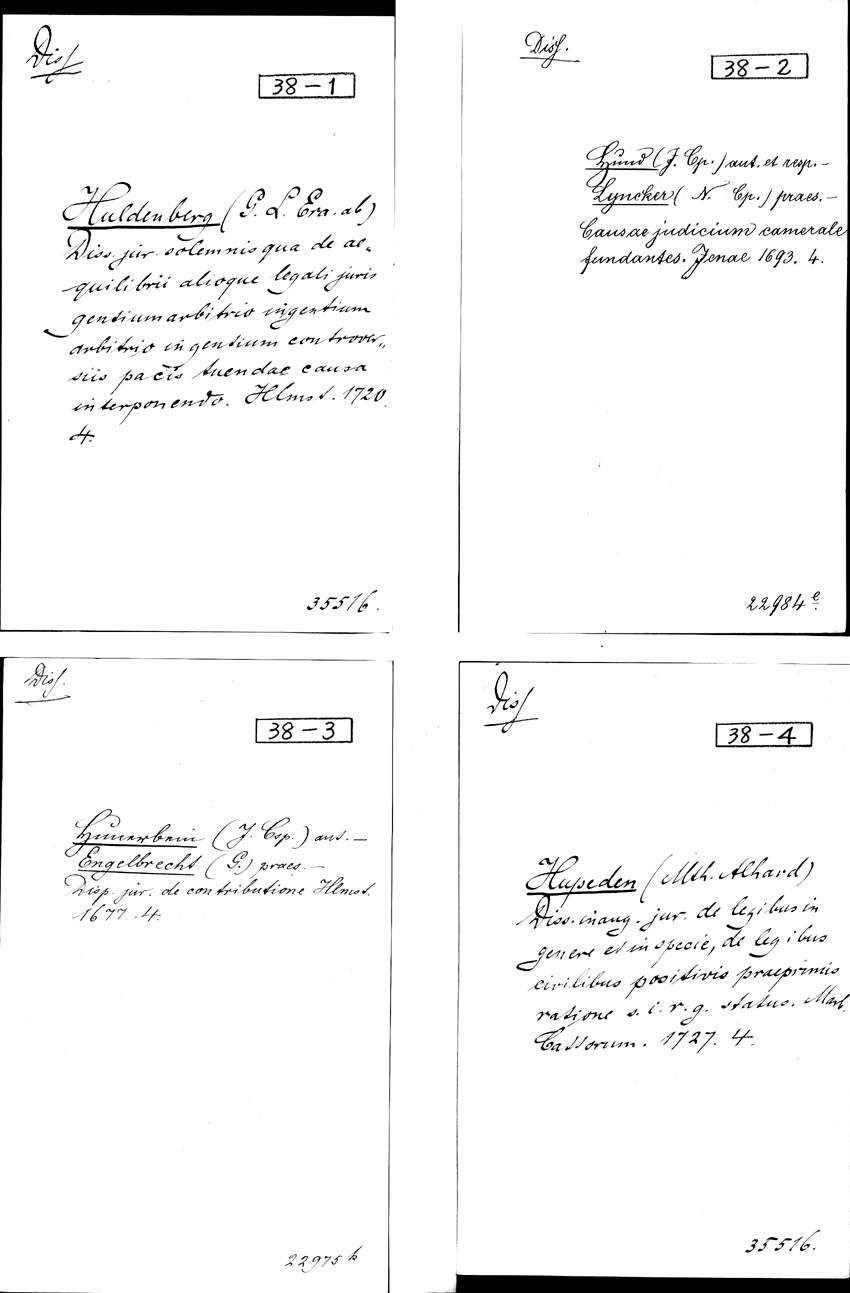 Diss
38-1
Huldenberg (G. L. Era. ab)
Diss. jur. solemnis qua de ae„
quilibrii alioque legali juris
gentium arbitrio in gentium
arbitrio in gentium controver„
siis pacis tuendae causa
interponendo. Hlmst. 1720.
4.
35516.
Diss.
38-2
Hund (J. Cp.) aut. et resp. —
Lyncker (N. Cp.) praes. —
Causae judicium camerale
fundantes. Jenae 1693. 4.
22984 e.
Diss.
38-3
Hünerbein (J. Csp.) aut. —
Engelbrecht (G.) praes. —
Disp. jur. de contributione Hlmst.
1677. 4.
22975 h
Diss
38-4
Hupeden (Mth. Alhard)
Diss. inaug. jur. de legibus in
genere et in specie, de legibus
civilibus positivis praeprimis
ratione s. i. r. g. status. Marb.
Cattorum. 1727. 4.
35516.